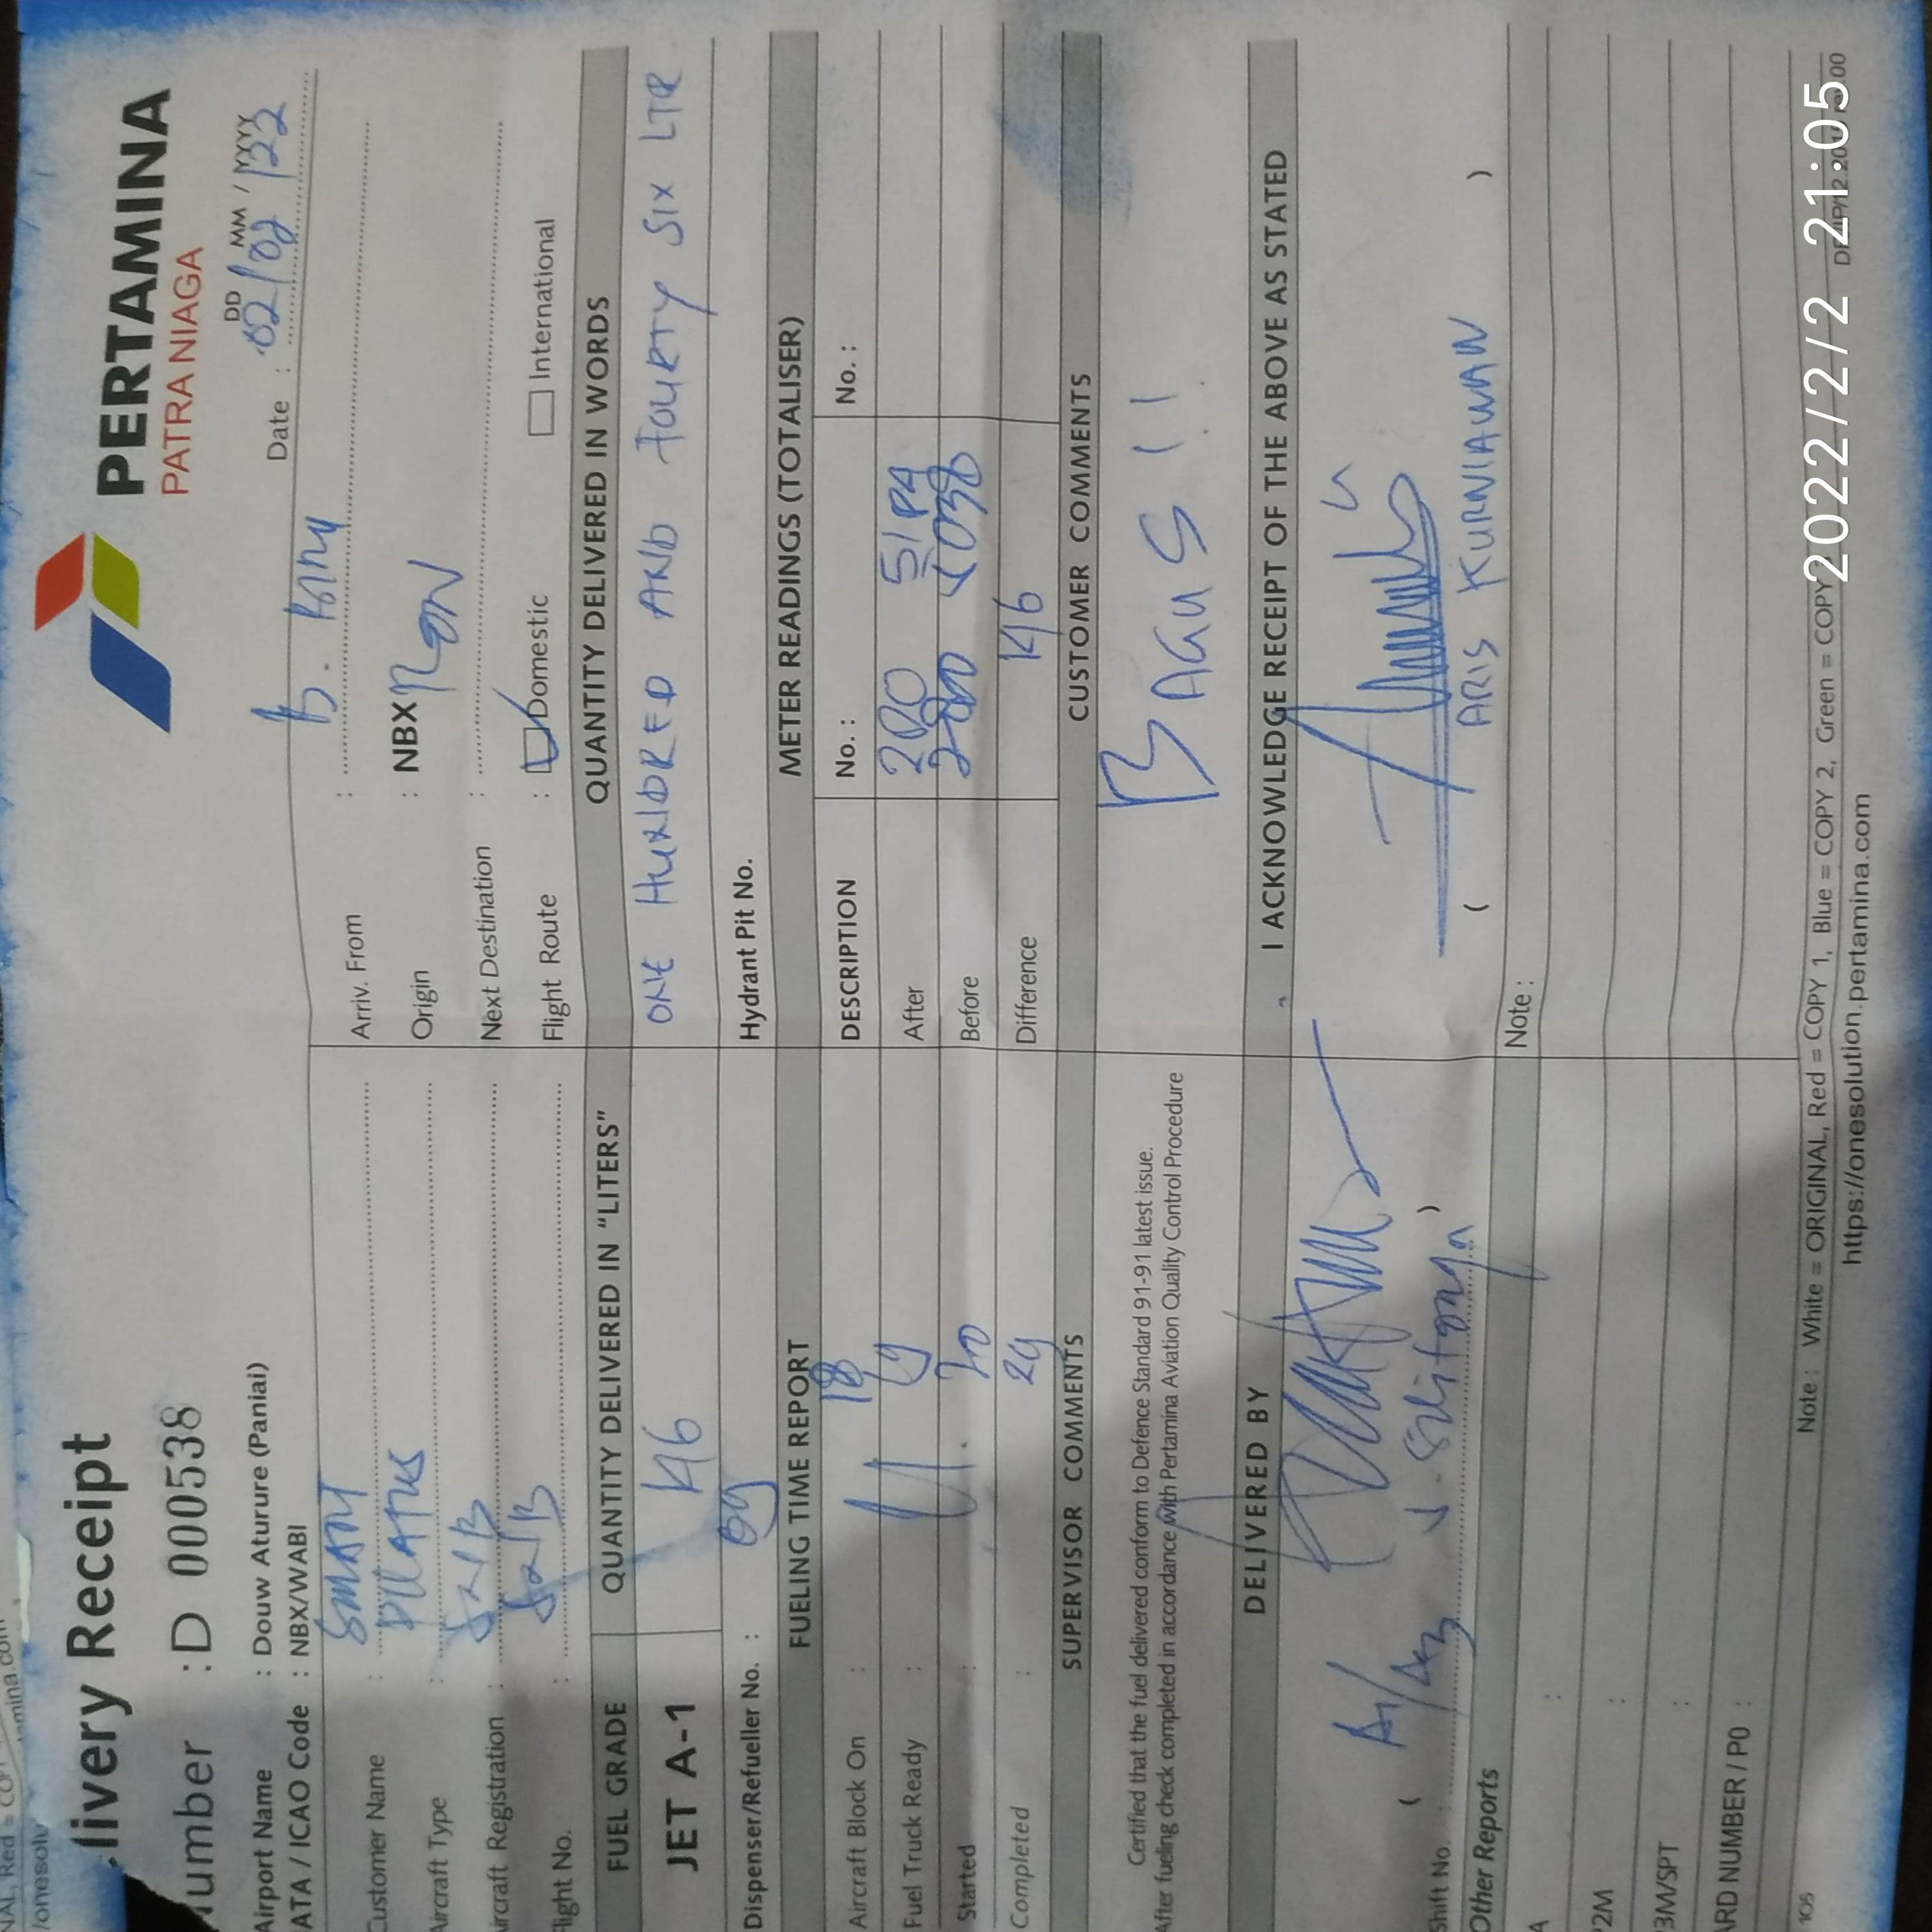 livery Receipt
PERTAMINA
PATRA NIAGA
Number : D 000538
DD MM / YYYY
Date : 02/02/22
Airport Name : Douw Aturure (Paniai)
ATA / ICAO Code : NBX/WABI
Customer Name : SMART
Aircraft Type : PILATUS
ircraft Registration :
light No. :
Arriv. From :
Origin : NBX
Next Destination :
Flight Route : Domestic International
FUEL GRADE QUANTITY DELIVERED IN "LITERS" QUANTITY DELIVERED IN WORDS
JET A-1 146 ONE HUNDRED AND FOURTY SIX LTR
Dispenser/Refueller No. : 09 Hydrant Pit No.
FUELING TIME REPORT METER READINGS (TOTALISER)
Aircraft Block On : 18 DESCRIPTION No. : No. :
Fuel Truck Ready : 19 After 200 5184
Started : 20 Before 200 5038
Completed : 24 Difference 146
SUPERVISOR COMMENTS CUSTOMER COMMENTS
Certified that the fuel delivered conform to Defence Standard 91-91 latest issue.
After fueling check completed in accordance with Pertamina Aviation Quality Control Procedure
BAGUS !!
DELIVERED BY I ACKNOWLEDGE RECEIPT OF THE ABOVE AS STATED
( )
( ARIS KURNIAWAN )
Shift No. :
Other Reports Note :
A :
P2M :
3M/SPT :
ARD NUMBER / P0 :
105 Note : White = ORIGINAL, Red = COPY 1, Blue = COPY 2, Green = COPY
https://onesolution.pertamina.com
2022/2/2 21:05